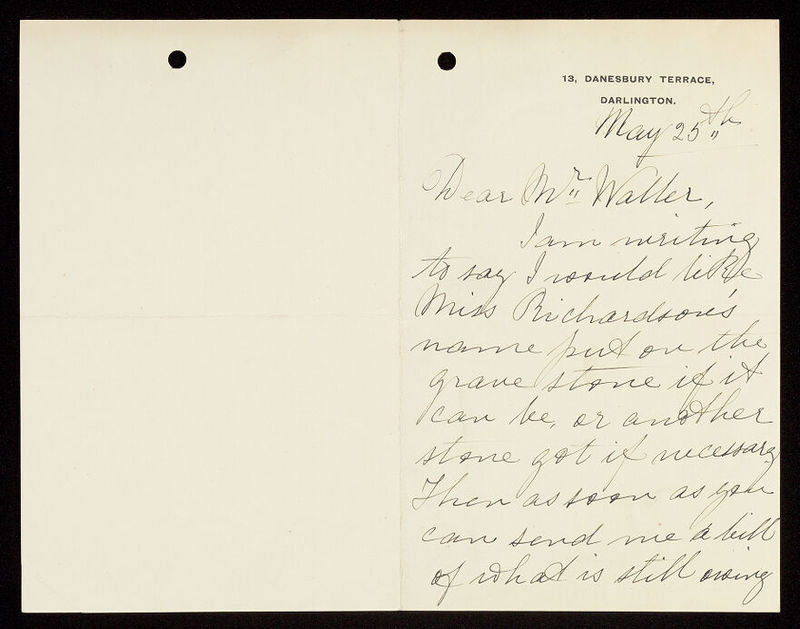 13, DANESBURY TERRACE,
DARLINGTON.
May 25th
Dear Mr Walter,
I am writing
to say I would like
Miss Richardson's
name put on the
grave stone if it
can be, or another
stone got if necessary
Then as soon as you
can send me a bill
of what is still owing